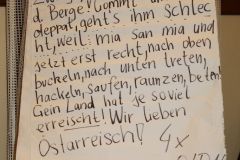 d. Berge kommt
deppat geht's ihm schlec
ht, weil: mia san mia und
Jetzt erst recht, nach oben
buckeln, nach unten treten,
hackeln, saufen, raunzen, beten!
Gein Land hut je soviel
erreischt! Wir lieben
Östarreisch! 4x